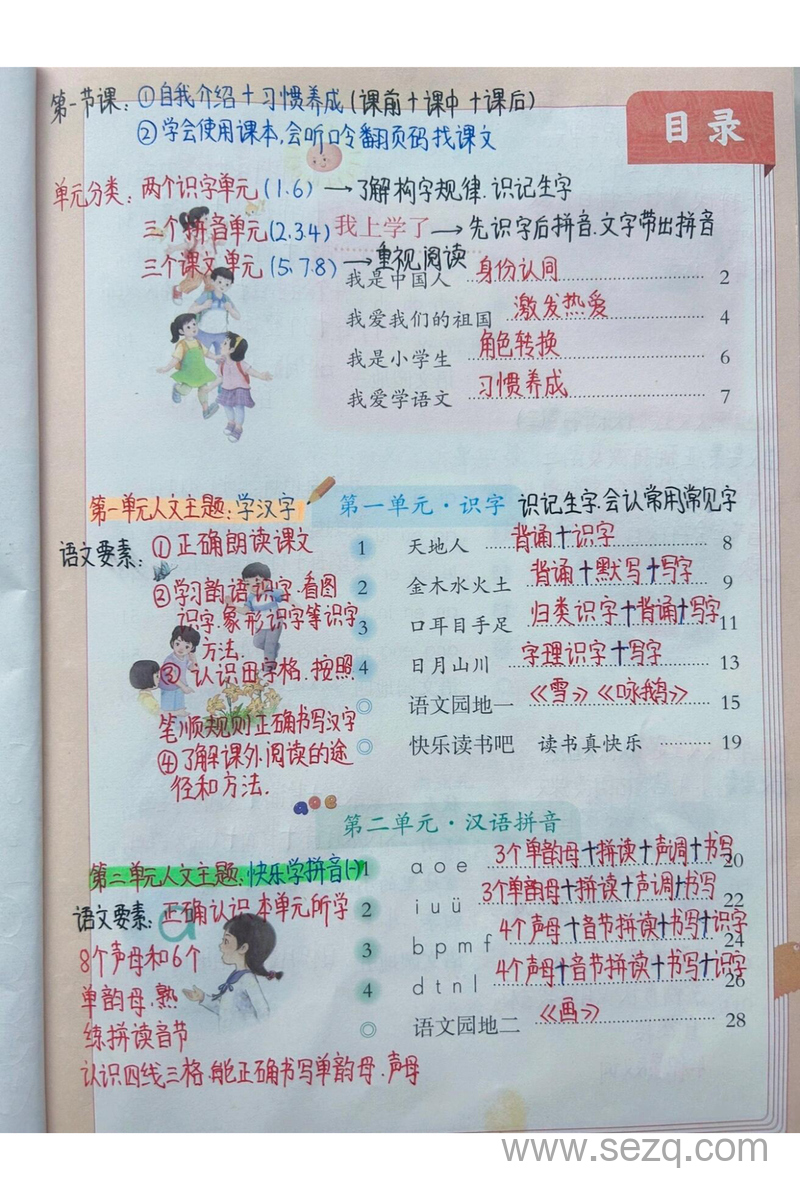 第一节课：①自我介绍+习惯养成(课前+课中+课后)
②学会使用课本,会听口令翻页码找课文
目录
单元分类：两个识字单元(1.6)→了解构字规律.识记生字
三个拼音单元(2.3.4)
我上学了→先识字后拼音.文字带出拼音
三个课文单元(5.7.8)→重视阅读
我是中国人 身份认同 2
我爱我们的祖国 激发热爱 4
我是小学生 角色转换 6
我爱学语文 习惯养成 7
第一单元人文主题：学汉字
第一单元·识字 识记生字.会认常用常见字
语文要素：①正确朗读课文
②学习韵语识字.看图
识字.象形识字等识字
方法.
③认识田字格.按照
笔顺规则正确书写汉字
④了解课外阅读的途
径和方法.
1 天地人 背诵+识字 8
2 金木水火土 背诵+默写+写字 9
3 口耳目手足 归类识字+背诵+写字 11
4 日月山川 字理识字+写字 13
◎ 语文园地一 《雪》《咏鹅》 15
◎ 快乐读书吧 读书真快乐 19
aoe
第二单元·汉语拼音
第二单元人文主题：快乐学拼音(一)
语文要素：正确认识本单元所学
8个声母和6个
单韵母.熟
练拼读音节
认识四线三格.能正确书写单韵母.声母
1 a o e 3个单韵母+拼读+声调+书写 20
2 i u ü 3个单韵母+拼读+声调+书写 22
3 b p m f 4个声母+音节拼读+书写+识字 24
4 d t n l 4个声母+音节拼读+书写+识字 26
◎ 语文园地二 《画》 28
www.sezq.com